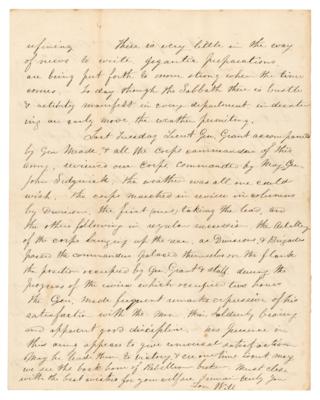 refining There is very little in the way
of news to write gigantic preparations
are being put forth to move strong when the time
comes. To day though the Sabbath there is bustle
& activity manifest in every department in
an early move the weather permiting.
Last Tuesday Lieut Gen Grant accompanied
by Gen Meade & all the Corps commanders of this
Army, reviewed our Corps commanded by Maj Gen
John Sedgwick the weather was all one could
wish. The corps marched in review in columns
by Divisions, the first taking the lead, and
the others following in regular succession the Artillery
of the corps bringing up the rear, as Divisions & Brigades
passed the commanders themselves on the flank
the position occupied by Gen Grant & staff during the
progress of the review which occupied two hours
the Gen. made frequent remarks expressive of his
satisfaction with the men their soldierly bearing
and apparent good discipline. His presence in
this army appears to give universal satisfaction
May he lead them to victory & may
we see the back bone of Rebellion broken Must close
with the best wishes for your welfare